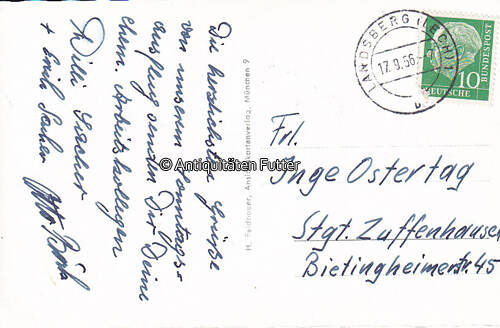 Die herzlichste Grüße
von unserem Sonntags=
ausflug senden Dir Deine
ehem. Arbeitskollegen
Willi
+ Emil
Otto
H. Feldhoser, Ansichtskartenverlag, München 9
© Antiquitäten Futter
LANDSBERG (LECH)
17.9.56
10
DEUTSCHE
BUNDESPOST
Frl.
Inge Ostertag
Stgt. Zuffenhausen
Bietingheimerstr. 45